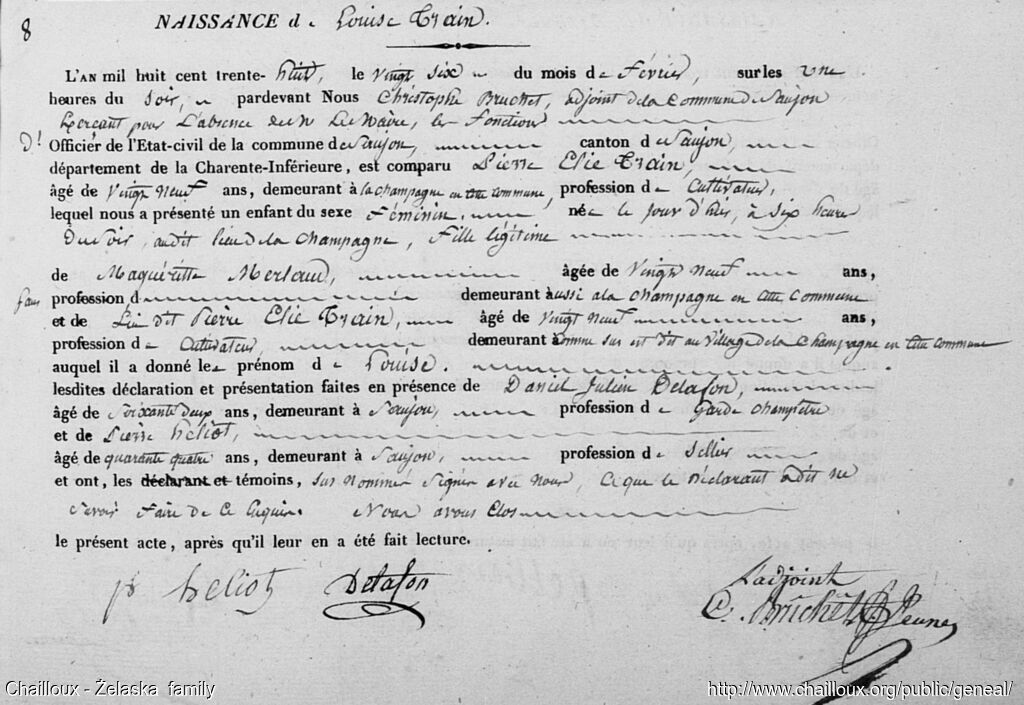 8
NAISSANCE de Louise Train.
L'AN mil huit cent trente-huit, le vingt six du mois de Février, sur les une
heures du soir, pardevant Nous Christophe Bruchet, adjoint de la Commune de Saujon
Exerçant pour L'absence de Mr Le Maire, les Fonctions
d' Officier de l'Etat-civil de la commune de Saujon, canton de Saujon,
département de la Charente-Inférieure, est comparu Pierre Elie Train,
âgé de vingt neuf ans, demeurant à la champagne en cette commune, profession de Cultivateur,
lequel nous a présenté un enfant du sexe Féminin, née le jour d'hier, à six heures
Du soir, audit lieu de la Champagne, Fille légitime
de Marguéritte Merlaud, âgée de vingt neuf ans,
sans profession, demeurant aussi à la champagne en cette Commune
et de Lui dit Pierre Elie Train, âgé de vingt neuf ans,
profession de Cultivateur, demeurant comme sus est dit au village de la Champagne en cette commune
auquel il a donné le prénom de Louise.
lesdites déclaration et présentation faites en présence de Daniel Julien Delafon,
âgé de soixante deux ans, demeurant à Saujon, profession de Garde champêtre
et de Pierre héliot,
âgé de quarante quatre ans, demeurant à Saujon, profession de sellier
et ont, les déclarant et témoins, sus nommés signés avec nous, ce que le Déclarant a dit ne
savoir Faire de ce enquis. Nous avons Clos
le présent acte, après qu'il leur en a été fait lecture.
pr heliot Delafon
L'adjoint
C. Bruchet Jeune
Chailloux - Żelaska family
http://www.chailloux.org/public/geneal/